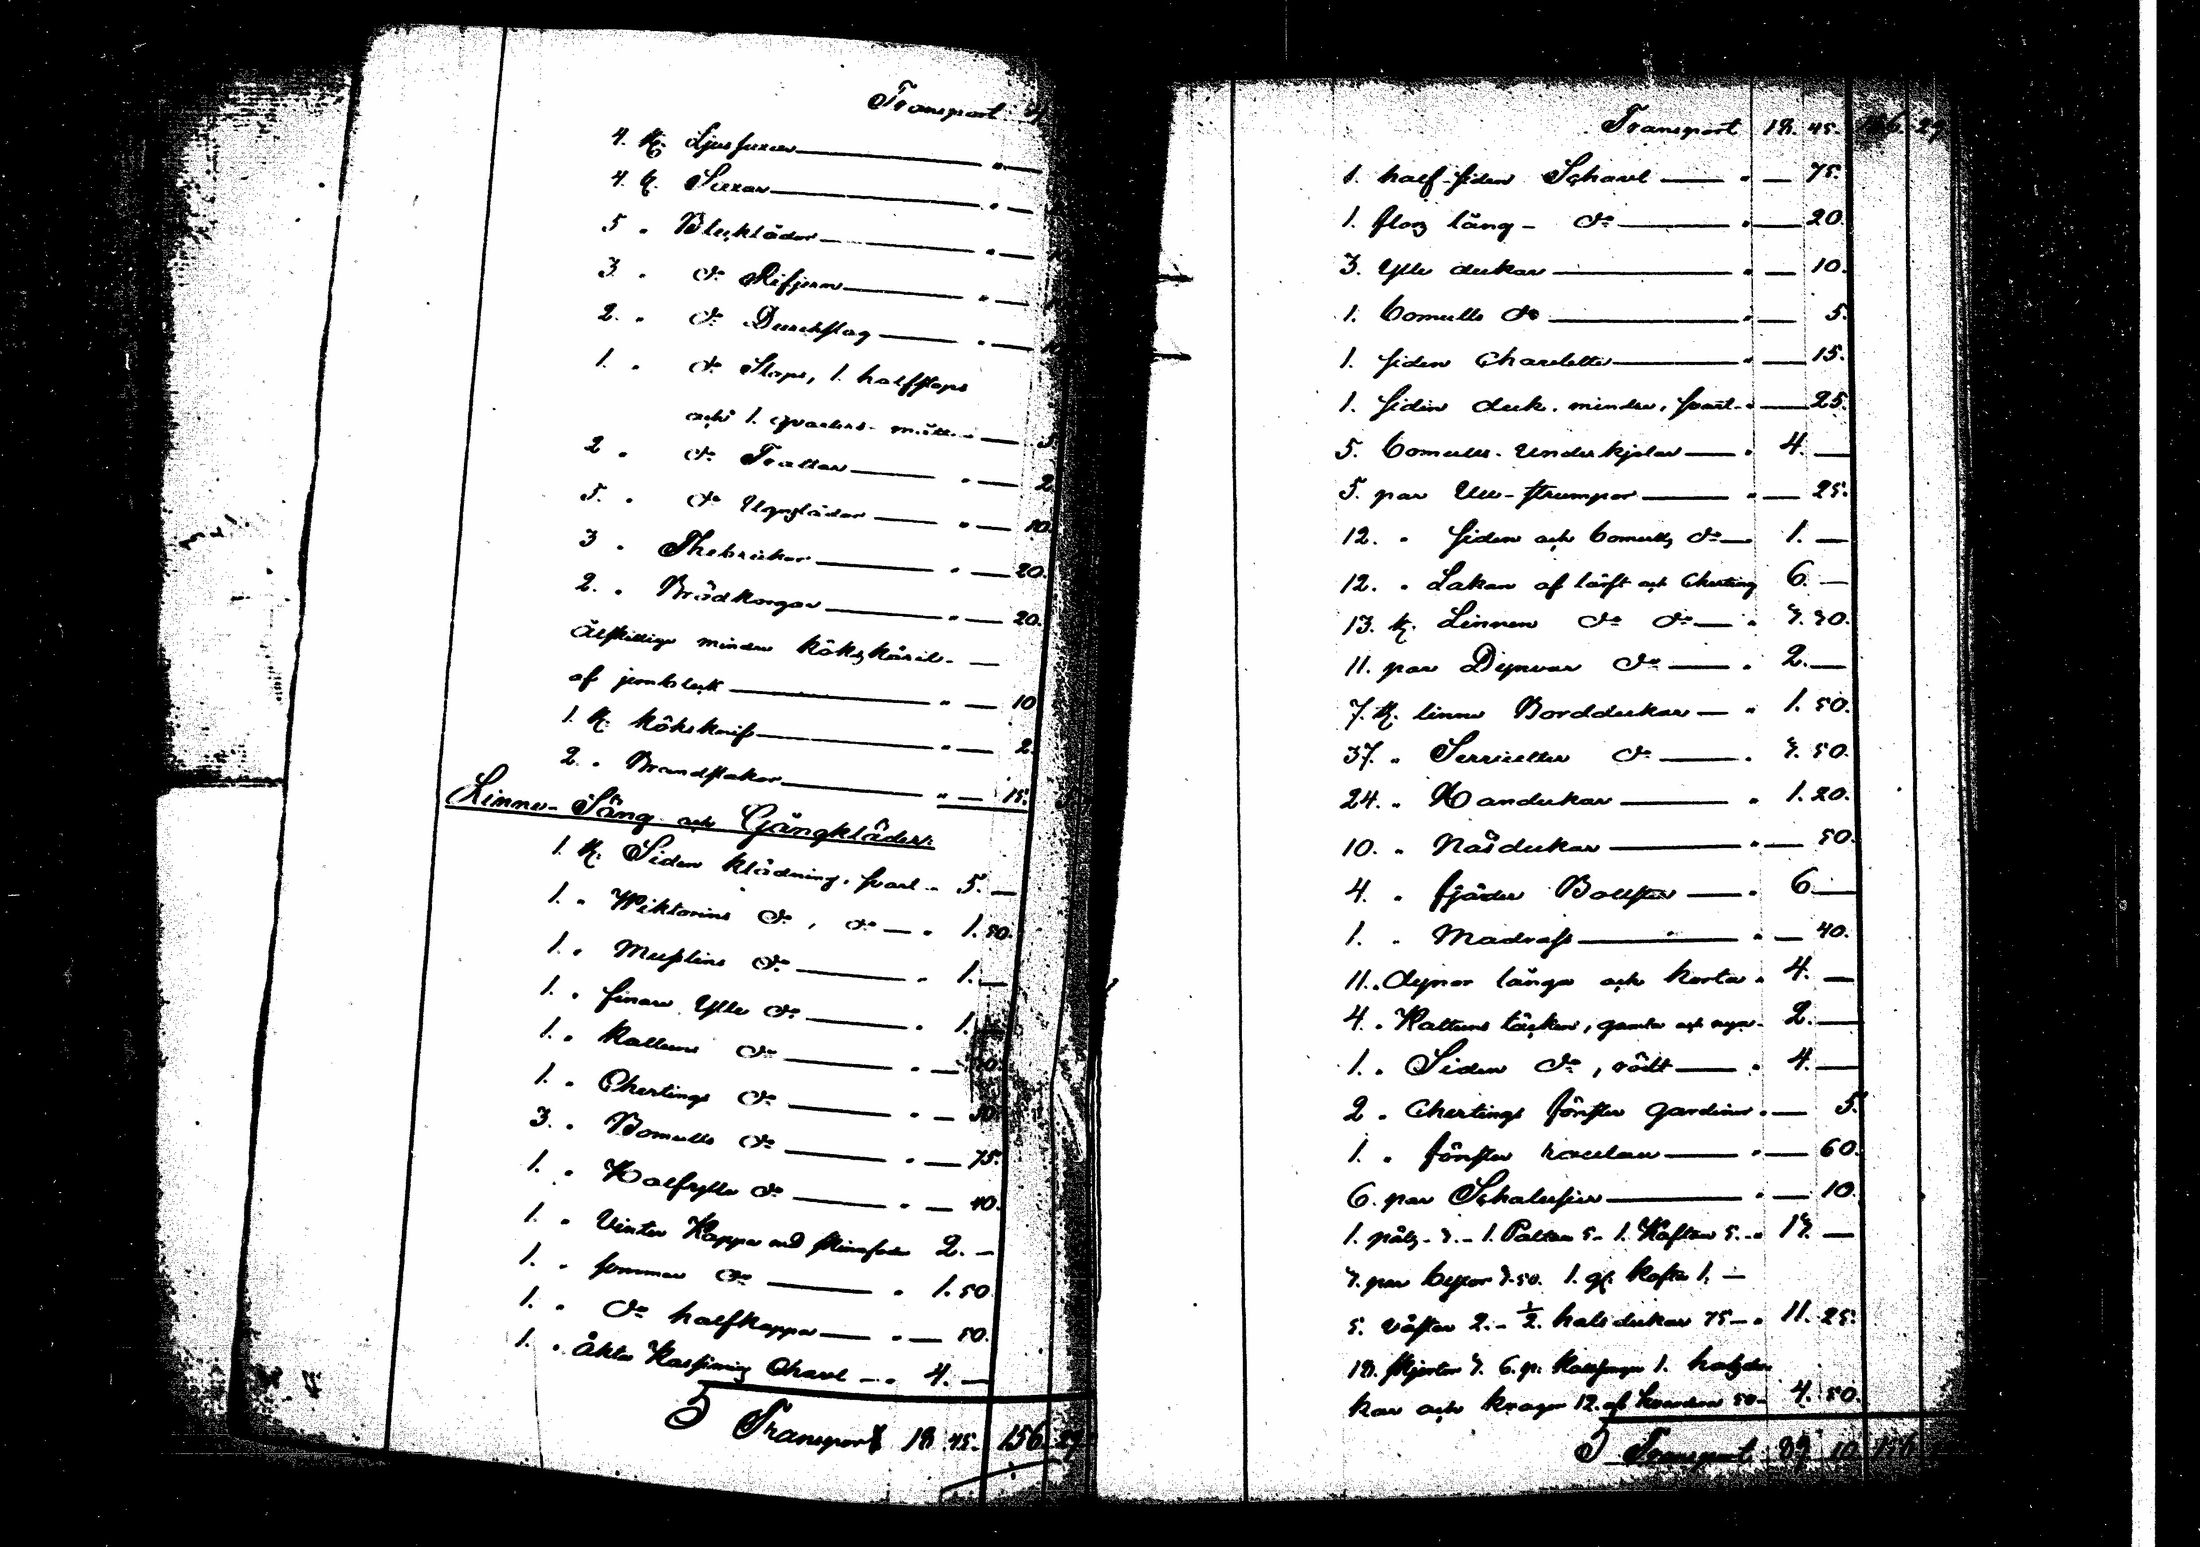 Transport
4. st. Ljussaxar — " —
4. st. Saxar — " —
5 " Blecklådor — " —
3. " do Rifjern — " —
2. " do Durchslag — " — 10
1. " do Stops, 1. halfstops
och 1. qvarters-mått " — 5
2 " do Trattar — " — 2
5. " do Ugnslådor — " — 10.
3 " Thebrickor — " — 20.
2. " Brödkorgar — " — 20.
Åtskillige mindre kökskäril —
af jernbleck — " — 10
1. st. köksknif — " — 2.
2. " Brandstakar — " — 15.
Linne- Säng och Gångkläder:
1. st. Siden klädning, svart " 5. —
1. " Wiktorins do, do — " 1. 50.
1. " Muslins do — " 1. —
1. " finare Ylle do — " 1.
1. " Kattuns do — " —
1. " Chertings do — " — 50.
3. " Bomulls do — " — 75.
1. " Halfylle do — " — 40.
1. " Vinter Kappa med skinnfoder 2. —
1. " sommar do — " 1. 50
1. " do halfkappa — " — 50.
1. " Äkta Kasimirs Chavl — " 4. —
Transport 18 45. 156. 29
Transport 18. 45. 156. 29
1. half-siden Schavl — " — 75.
1. flors lång- do — " — 20.
3. Ylle dukar — " — 10.
1. bomulls do — " — 5.
1. siden Charlette — " — 15.
1. siden duk, mindre, svart " — 25.
5. bomulls-Underkjolar — " 4. —
5. par Ull-strumpor — " — 25.
12. " siden och bomulls do — 1. —
12. " Lakan af lärft och Cherting 6. —
13. st. Linnen do do — " 3. 30.
11. par Dynvar do — " 2. —
7. st. linne Bordduckar — " 1. 50.
37. " Servietter do — " 3. 50.
24. " Handukar — " 1. 20.
10. " Näsdukar — " — 50.
4. " fjäder Bolstrar — " 6 —
1. " Madrass — " — 40.
11. " Dynor långa och korta " 4. —
4. " Kattuns täcken, gamla och nya " 2. —
1. " Siden do, rödt — " 4. —
2 " Chertings fönster gardiner " — 5.
1. " fönster roulau — " — 60.
6. par Schalusier — " — 10.
1. päls 7. — 1. Paltå 5 — 1. Kaftan 5. — " 17. —
7. par byxor 3.50. 1. gl. kofta 1. —
5. västar 2. — ½ halsdukar 75 — " 11. 25.
18. skjortor 3. 6. pr. Kallsonger 1. halsdu
kar och kragar 12. af 50 — 4. 50.
Transport 89 10 156